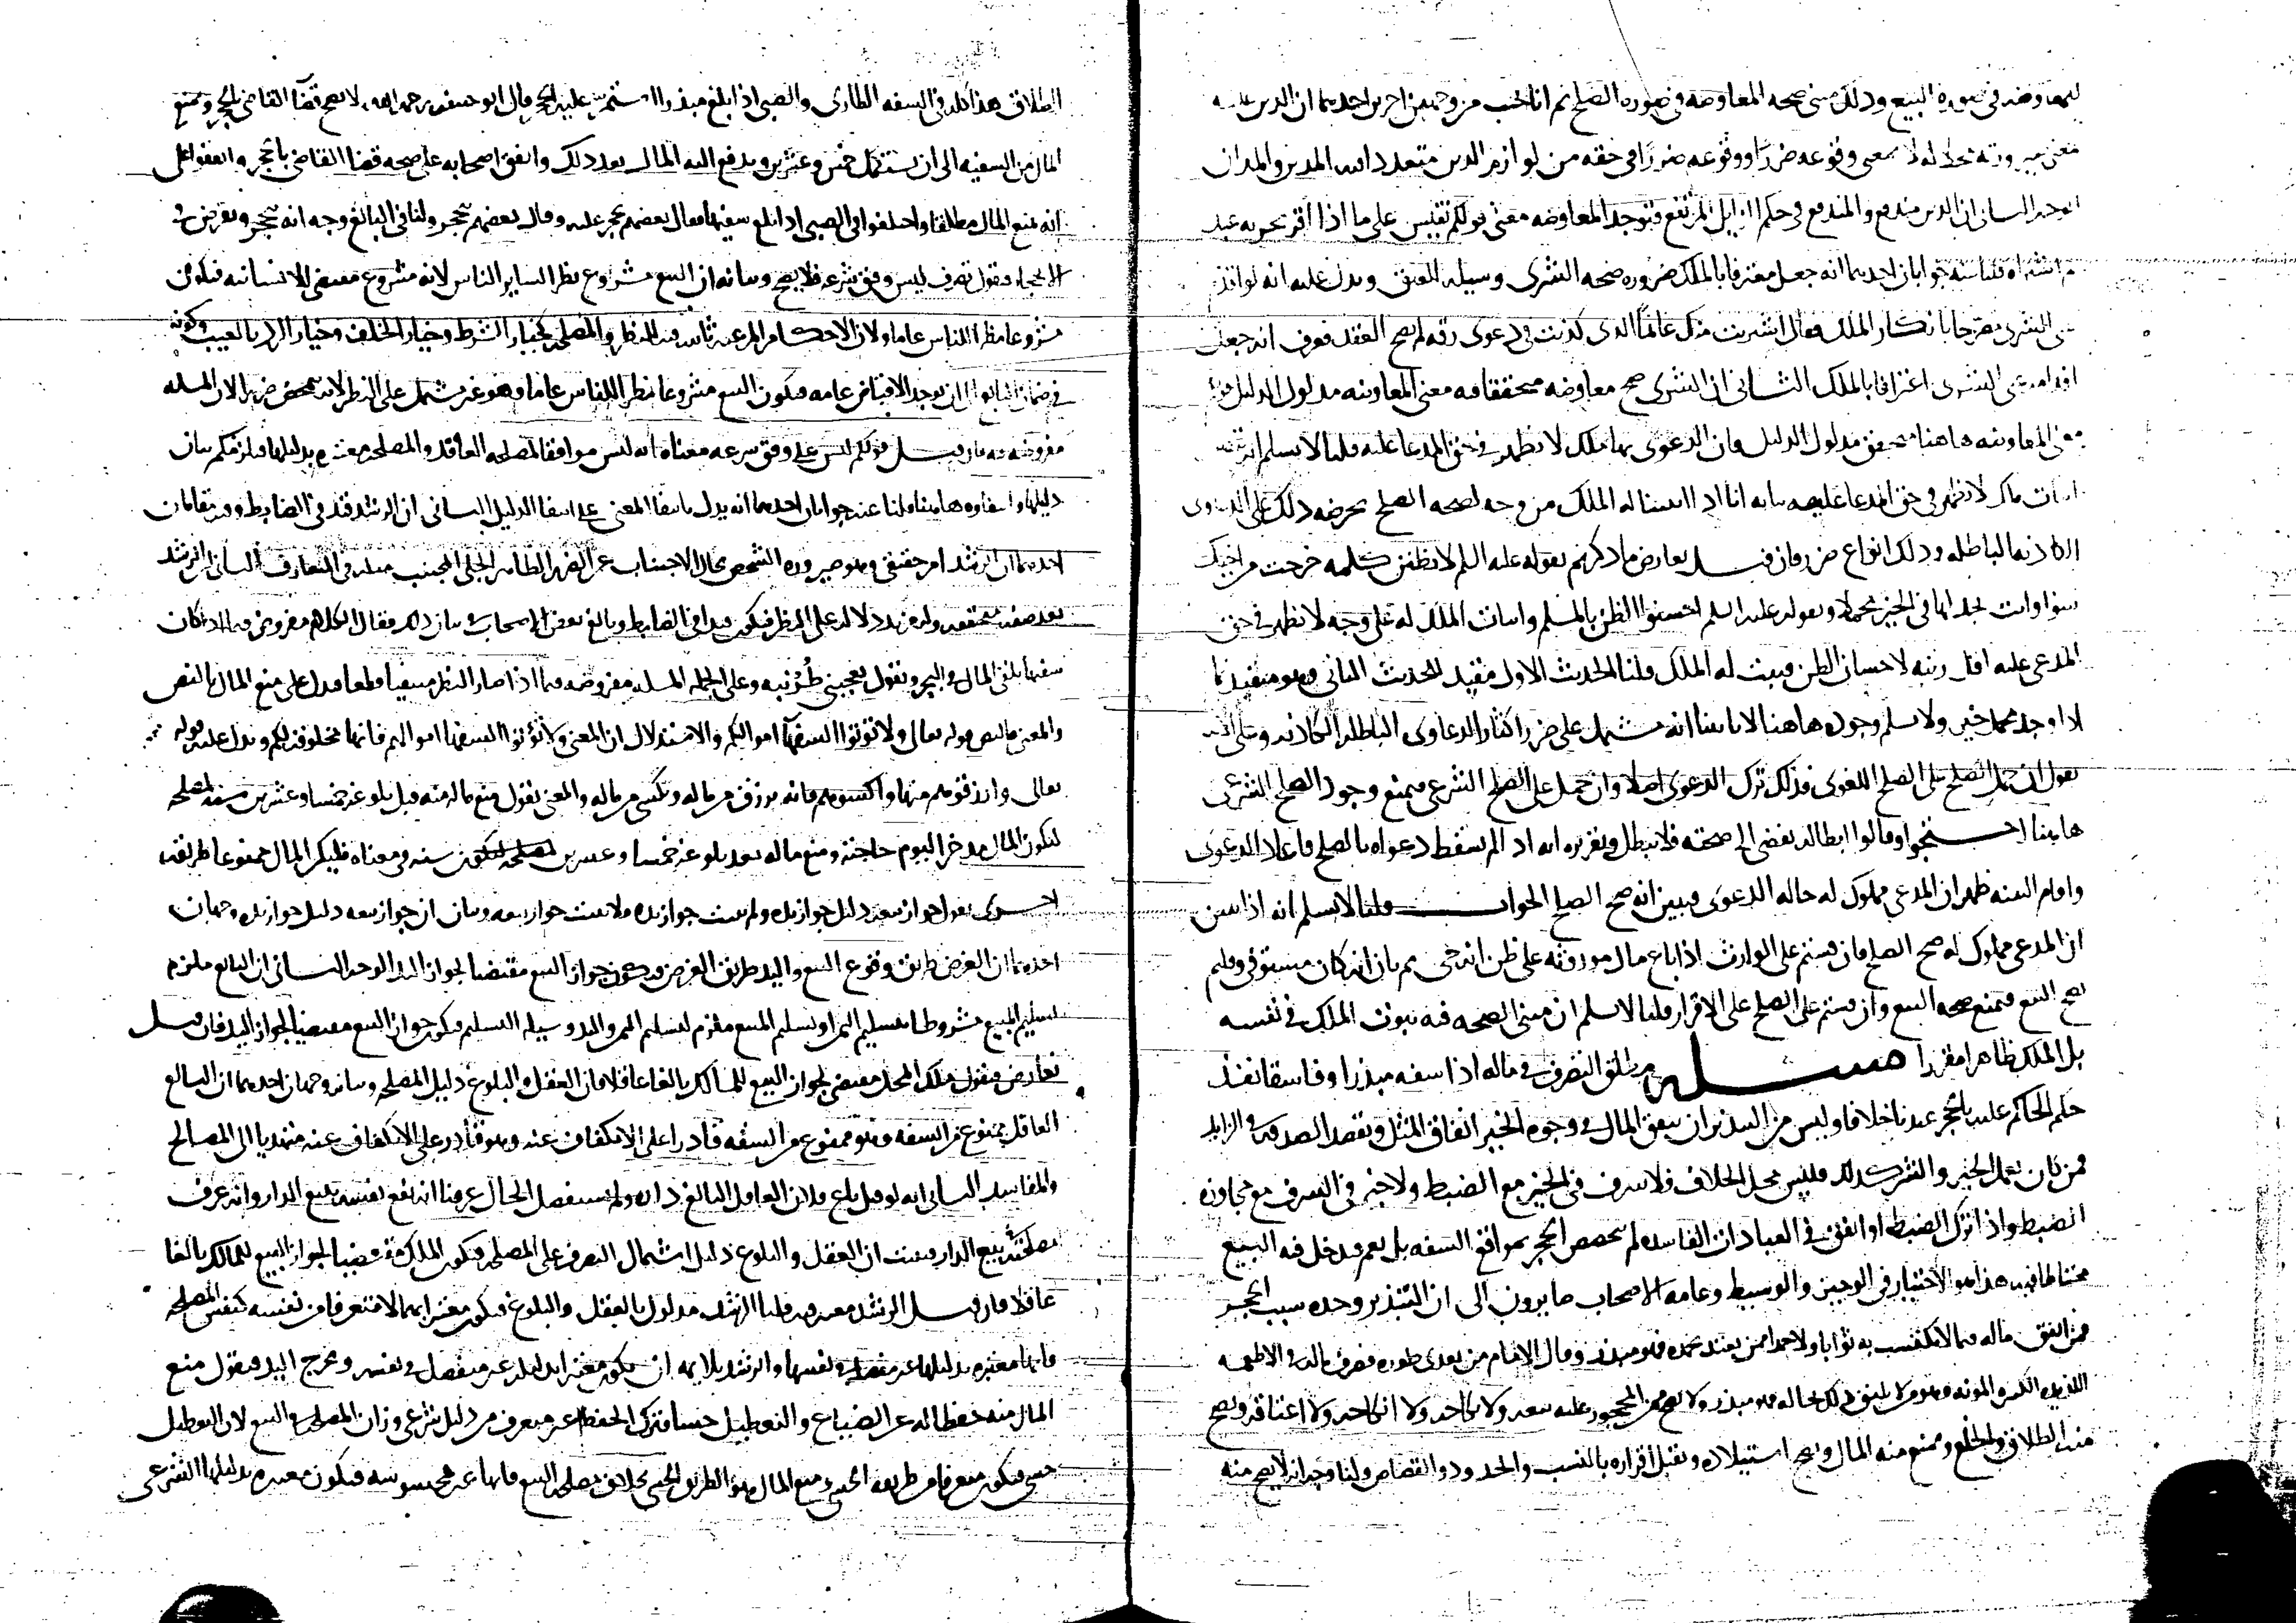 للمعاوضه في صورة البيع وذلك مبنى صحه المعاوضه في صوره الصلح ثم انا نجيب من وجهين اخرين احدهما ان الدين عليه
معنى صيرورته محلا له لا معنى وقوعه ضررا ووقوعه ضررا في حقه من لوازم الدين متعدد المدين والمدان
الوجه الثاني ان الدين مندفع والمندفع في حكم الزايل المرتفع فتوجد المعاوضه معنى قولكم نقيس على ما اذا اقر بحريه عبد
ثم اشتراه قلنا عنه جوابان احدهما انه جعل معترفا بالملك ضروره صحه الشرى وسيله العتق ويدل عليه انه لو
الشرى مصرحا بانكار الملك فقال اشتريت منك عالما انك كذبت في دعوى رقه لم يصح العقد فعرف انه جعل
اقدامه على الشرى اعترافا بالملك الثاني ان الشرى صح معاوضه متحققا فيه معنى المعاوضه مدلول الدليل
معنى المعاوضه هاهنا متحقق مدلول الدليل فان الدعوى بها ملك لا يظهر في حق المدعا عليه قلنا لا نسلم
اثبات ملك لا يظهر في حق المدعا عليه بيانه انا اذا اثبتنا له الملك من وجه لصحه الصلح يحرضه ذلك على الدعاوى
الكاذبه الباطله وذلك انواع ضرر فان قيل يعارض ما ذكرتم بقوله عليه السلم لا تظنن بكلمه خرجت من اخيك
سوا وانت تجد لها في الخير محملا وبقوله عليه السلم احسنوا الظن بالمسلم واثبات الملك له على وجه لا يظهر في حق
المدعى عليه اقل رتبه لاحسان الظن فيثبت له الملك قلنا الحديث الاول مقيد للحديث الثاني وهو متقيد بما
اذا وجد محمل خير ولا نسلم وجوده هاهنا لانا بينا انه يشتمل على ضرر اكثار الدعاوى الباطله الكاذبه وعلى انه
نقول ان حمل الصلح على الصلح اللغوى فذلك ترك الدعوى اصلا وان حمل على الصلح الشرعى فيمتنع وجود الصلح الشرعى
هاهنا احتجوا وقالوا ابطاله يفضى الى صحته فلا يبطل وتقريره انه اذا لم يسقط دعواه بالصلح فاعاد الدعوى
واقام البينه ظهر ان المدعى مملوك له حاله الدعوى فتبين انه صح الصلح الجواب قلنا لا نسلم انه اذا تبين
ان المدعى مملوك له صح الصلح فان قستم على الوارث اذا باع مال مورثه على ظن انه حى ثم بان انه كان متوفى فلم
يصح البيع فنمنع صحه البيع وان قستم على الصلح على الاقرار قلنا لا نسلم ان مبنى الصحه فيه ثبوت الملك في نفسه
بل الملك ظاهرا مقررا مسئله من يطلق التصرف في ماله اذا سفه مبذرا او فاسقا نفذ
حكم الحاكم عليه بالحجر عندنا خلافا وليس من التبذير ان ينفق المال في وجوه الخير انفاق المثل ويقصد الصدقه في الزايد
فمن كان يعمل الخير والشر كذلك فليس محل الخلاف فلا سرف في الخير مع الضبط ولا خير في السرف مع مجاوزه
الضبط واذا ترك الضبط او انفق في العبادات الفاسده لم يتخصص الحجر بمواقع السفه بل يعم فيدخل فيه البيع
محتاطا فيه هذا هو الاختيار في الوجيز والوسيط وعامه الاصحاب صايرون الى ان التبذير وحده سبب الحجر
فمن انفق ماله فيما لا يكتسب به ثوابا ولا حمدا ممن يعتد بحمده فهو مبذر وقال الامام من تعدى طوره فصرف ماله في الاطعمه
اللذيذه الكثيره المونه وهو ممن لا يليق ذلك بحاله فهو مبذر ولا يصح من المحجور عليه بيعه ولا نكاحه ولا انكاحه ولا اعتاقه ويصح
منه الطلاق والخلع ويمنع منه المال ويصح استيلاده ويقبل اقراره بالنسب والحدود والقصاص ولنا وجه انه لا يصح منه
الطلاق هذا كله في السفه الطارى والصبى اذا بلغ مبذرا استمر عليه الحجر قال ابو حنيفه رحمه الله لا يصح قضا القاضى بالحجر ويمنع
المال من السفيه الى ان يستكمل خمس وعشرين ويدفع اليه المال بعد ذلك واتفق اصحابه على صحه قضا القاضى بالحجر واتفقوا على
انه يمنع المال مطلقا واختلفوا في الصبى اذا بلغ سفيها فقال بعضهم يحجر عليه وقال بعضهم ينحجر ولنا في البالغ وجه انه ينحجر ونفرض في
الانحجار فنقول تصرف ليس وفق شرعه فلا يصح وبيانه ان البيع مشروع نظرا لساير الناس لانه مشروع مقتضى للانسانيه فيكون
مشروعا نظرا للناس عاما ولان الاحكام المرعيه ثابته فيه للنظر والمصلحه كخيار الشرط وخيار الخلف وخيار الرد بالعيب وكونه
في ضمان البايع الى ان يوجد الاقباض عامه فيكون البيع مشروعا نظرا للناس عاما وهو غير مشتمل على النظر لانه تمحض ضررا لان المسله
مفروضه فيه فان قيل قولكم ليس على وفق شرعه معناه انه ليس موافقا لمصلحه العاقد والمصلحه معتبره بدليلها فيلزمكم بيان
دليلها وانتفاوه هاهنا قلنا عنه جوابان احدهما انه يدل بانتفا المعنى على انتفا الدليل الثاني ان الرشد قيد في الضابط وفيه مقامان
احدهما ان الرشد امر حقيقى وهو صيروره الشخص بحال الاجتناب عن الضرر الظاهر الجلى المجتنب مثله في التعارف الثاني الرشد
بعد صفه متحققه وله مزيد دلاله على النظر فيكون قيدا في الضابط وبالغ بعض الاصحاب في بيان ذلك فقال الكلام مفروض فيما اذا كان
سفيها يلقى المال في البحر ويقول يعجبنى طرطبه وعلى الجمله المسله مفروضه فيما اذا صار النظر منتفيا قطعا فدل على منع المال بالنص
والمعنى فالنص قوله تعالى ولا تؤتوا السفهآ اموالكم والاستدلال ان المعنى ولا تؤتوا السفها اموالهم فانها مخلوقه لكم ويدل عليه قوله
تعالى وارزقوهم منها واكسوهم فانه يرزق من ماله ويكسى من ماله والمعنى نقول منع ماله منه قبل بلوغه خمسا وعشرين سنه لمصلحه
ليكون المال مدخرا ليوم حاجته ومنع ماله بعد بلوغه خمسا وعشرين سنه في معناه فليكن المال ممنوعا طريقه
اخرى نقول جواز بيعه دليل جواز يده ولم يثبت جواز يده فلا يثبت جواز بيعه وبيان ان جواز بيعه دليل جواز يده وجهان
احدهما ان الغرض طريق وقوع البيع واليد طريق الغرض فيكون جواز البيع مقتضيا لجواز اليد الوجه الثاني ان البايع ملزم
تسليم المبيع مشروطا بتسليم الثمن او تسليم المبيع ملزم لتسليم الثمن واليد وسيله التسليم فيكون جواز البيع مقتضيا لجواز اليد فان قيل
نعارض فنقول ملك المحل مقتضى لجواز البيع للمالك بالغا عاقلا فان العقل والبلوغ دليل المصلحه وبيانه وجهان احدهما ان البالغ
العاقل ممنوع عن السفه وهو ممنوع عن السفه قادرا على الانكفاف عنه وهو قادر على الانكفاف عنه متهديا الى المصالح
والمفاسد الثاني انه لو قيل باع فلان العاقل البالغ داره ولم نستفصل الحال عرفنا انه نفع نفسه ببيع الدار وانه عرف
مصلحته في بيع الدار فثبت ان العقل والبلوغ دليل اشتمال التصرف على المصلحه فيكون الملك مقتضيا لجواز البيع للمالك بالغا
عاقلا فان قيل الرشد معتبر فيه قلنا الرشد مدلول بالعقل والبلوغ فيكون معتبرا بهما لا متعرفا من نفسه كنفس المصلحه
فانها معتبره بدليلها غير مفصله في نفسها والرشد بلايمه ان يكون معتبرا بدليله غير منفصل في نفسه ويخرج اليد فنقول منع
المال منه حفظا له عن الضياع والتعطيل حسا فترك الحفظ غير متعرف من دليل شرعى وزان المصلحه في البيع لان التعطيل
حسى فيكون متعرفا من طريقه الحسى ومنع المال هو الطريق الحسى بخلاف مصلحه البيع فانها غير محسوسه فيكون معتبره بدليلها الشرعى